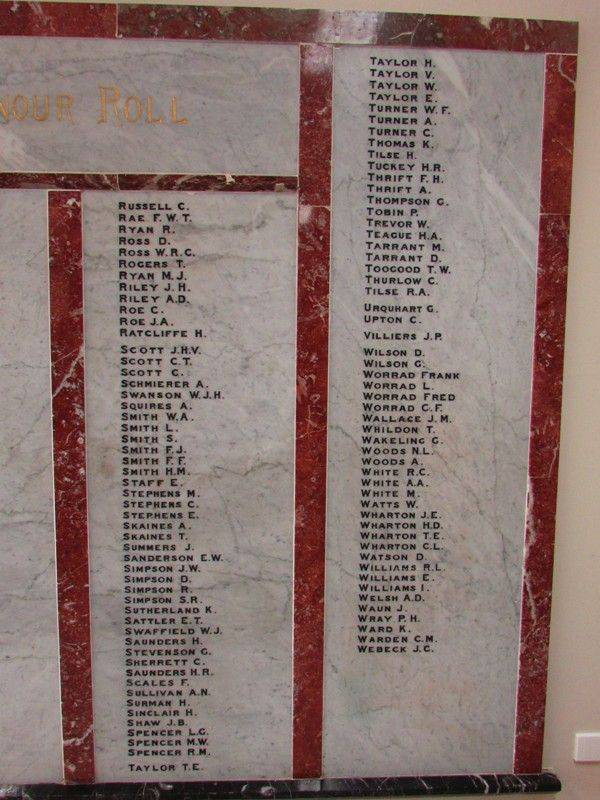 NOUR ROLL
RUSSELL C.
RAE F.W.T.
RYAN R.
ROSS D.
ROSS W.R.C.
ROGERS T.
RYAN M.J.
RILEY J.H.
RILEY A.D.
ROE C.
ROE J.A.
RATCLIFFE H.
SCOTT J.H.V.
SCOTT C.T.
SCOTT G.
SCHMIERER A.
SWANSON W.J.H.
SQUIRES A.
SMITH W.A.
SMITH L.
SMITH S.
SMITH F.J.
SMITH F.F.
SMITH H.M.
STAFF E.
STEPHENS M.
STEPHENS C.
STEPHENS E.
SKAINES A.
SKAINES T.
SUMMERS J.
SANDERSON E.W.
SIMPSON J.W.
SIMPSON D.
SIMPSON R.
SIMPSON S.R.
SUTHERLAND K.
SATTLER E.T.
SWAFFIELD W.J.
SAUNDERS H.
STEVENSON G.
SHERRETT C.
SAUNDERS H.R.
SCALES F.
SULLIVAN A.N.
SURMAN H.
SINCLAIR H.
SHAW J.B.
SPENCER L.G.
SPENCER M.W.
SPENCER R.M.
TAYLOR T.E.
TAYLOR H.
TAYLOR V.
TAYLOR W.
TAYLOR E.
TURNER W.F.
TURNER A.
TURNER C.
THOMAS K.
TILSE H.
TUCKEY H.R.
THRIFT F.H.
THRIFT A.
THOMPSON G.
TOBIN P.
TREVOR W.
TEAGUE H.A.
TARRANT M.
TARRANT D.
TOOGOOD T.W.
THURLOW C.
TILSE R.A.
URQUHART G.
UPTON C.
VILLIERS J.P.
WILSON D.
WILSON G.
WORRAD FRANK
WORRAD L.
WORRAD FRED
WORRAD C.F.
WALLACE J.M.
WHILDON T.
WAKELING G.
WOODS N.L.
WOODS A.
WHITE R.C.
WHITE A.A.
WHITE M.
WATTS W.
WHARTON J.E.
WHARTON H.D.
WHARTON T.E.
WHARTON C.L.
WATSON D.
WILLIAMS R.L.
WILLIAMS E.
WILLIAMS I.
WELSH A.D.
WAUN J.
WRAY P.H.
WARD K.
WARDEN C.M.
WEBECK J.C.